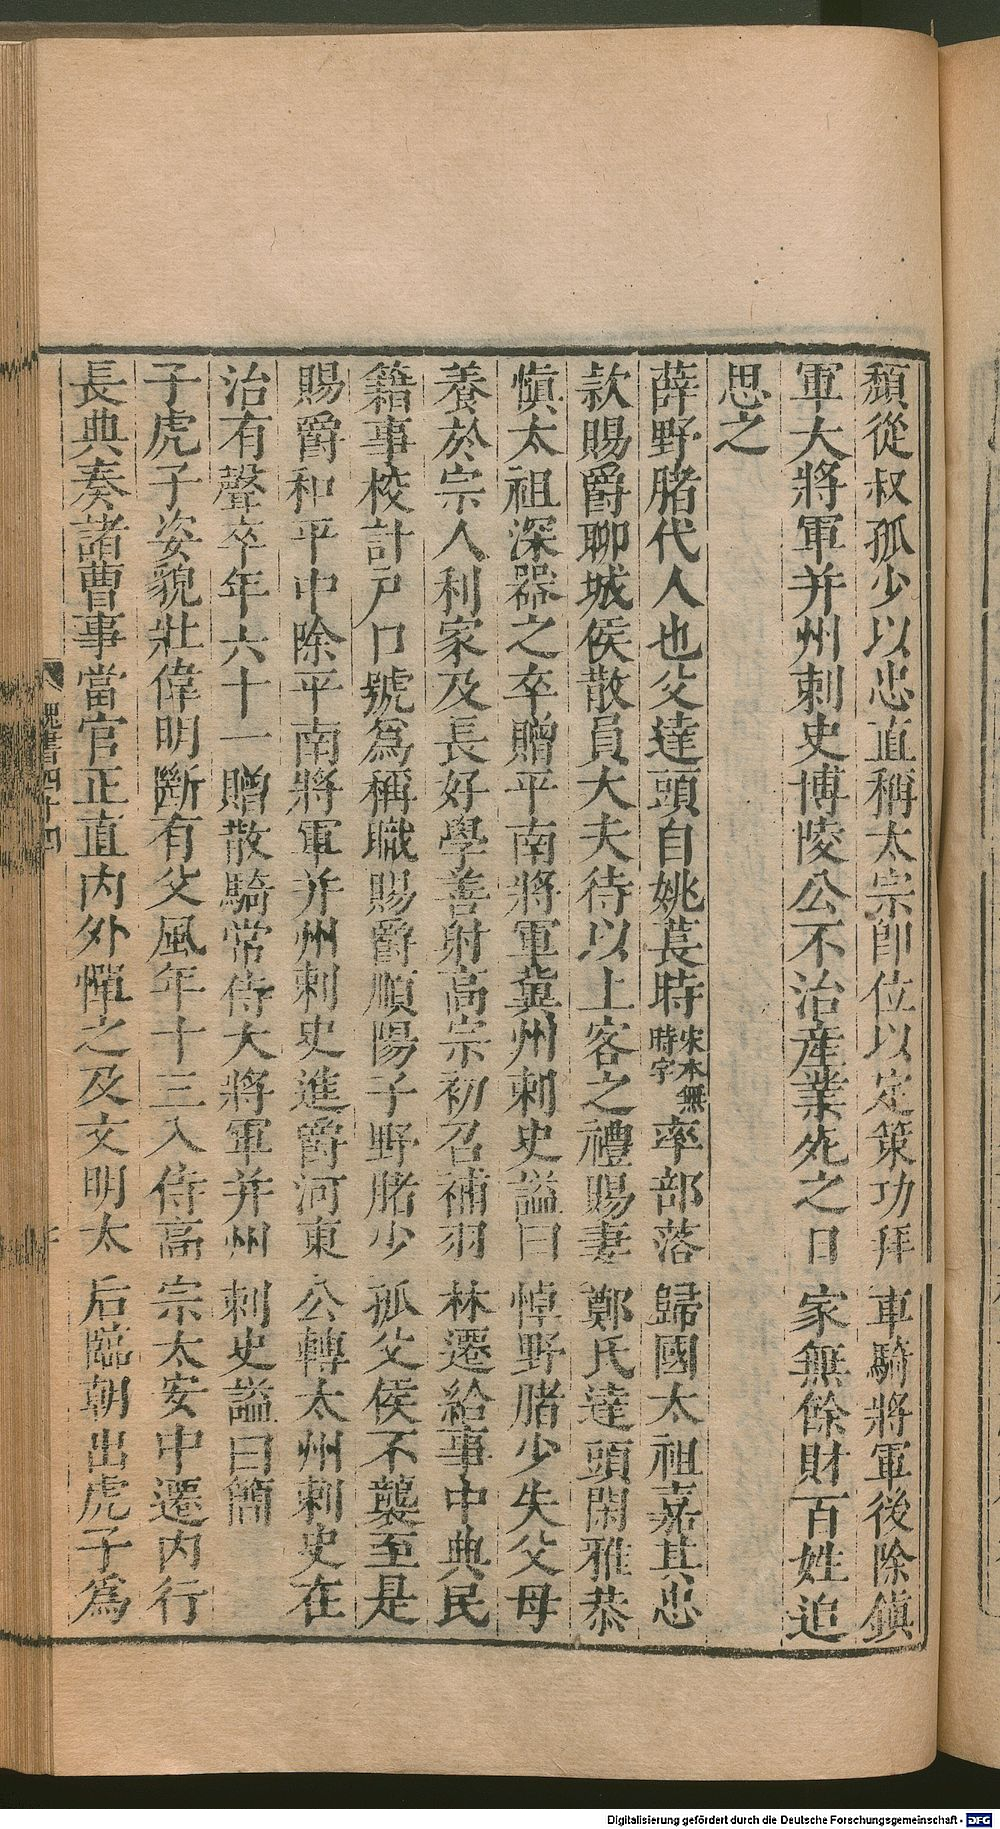 頹從叔孤少以忠直稱太宗卽位以定策功拜車騎將軍後除鎮
軍大將軍并州刺史博陵公不治產業死之日家無餘財百姓追
思之
薛野䐗代人也父達頭自姚萇時宋本無時字率部落歸國太祖嘉其忠
款賜爵聊城侯散員大夫待以上客之禮賜妻鄭氏達頭閑雅恭
愼太祖深器之卒贈平南將軍冀州刺史謚曰悼野䐗少失父母
養於宗人利家及長好學善射高宗初召補羽林遷給事中典民
籍事校計戶口號爲稱職賜爵順陽子野䐗少孤父侯不襲至是
賜爵和平中除平南將軍并州刺史進爵河東公轉太州刺史在
治有聲卒年六十一贈散騎常侍大將軍并州刺史謚曰簡
子虎子姿貌壯偉明斷有父風年十三入侍高宗太安中遷內行
長典奏諸曹事當官正直內外憚之及文明太后臨朝出虎子爲
魏書四十四
Digitalisierung gefördert durch die Deutsche Forschungsgemeinschaft - DFG